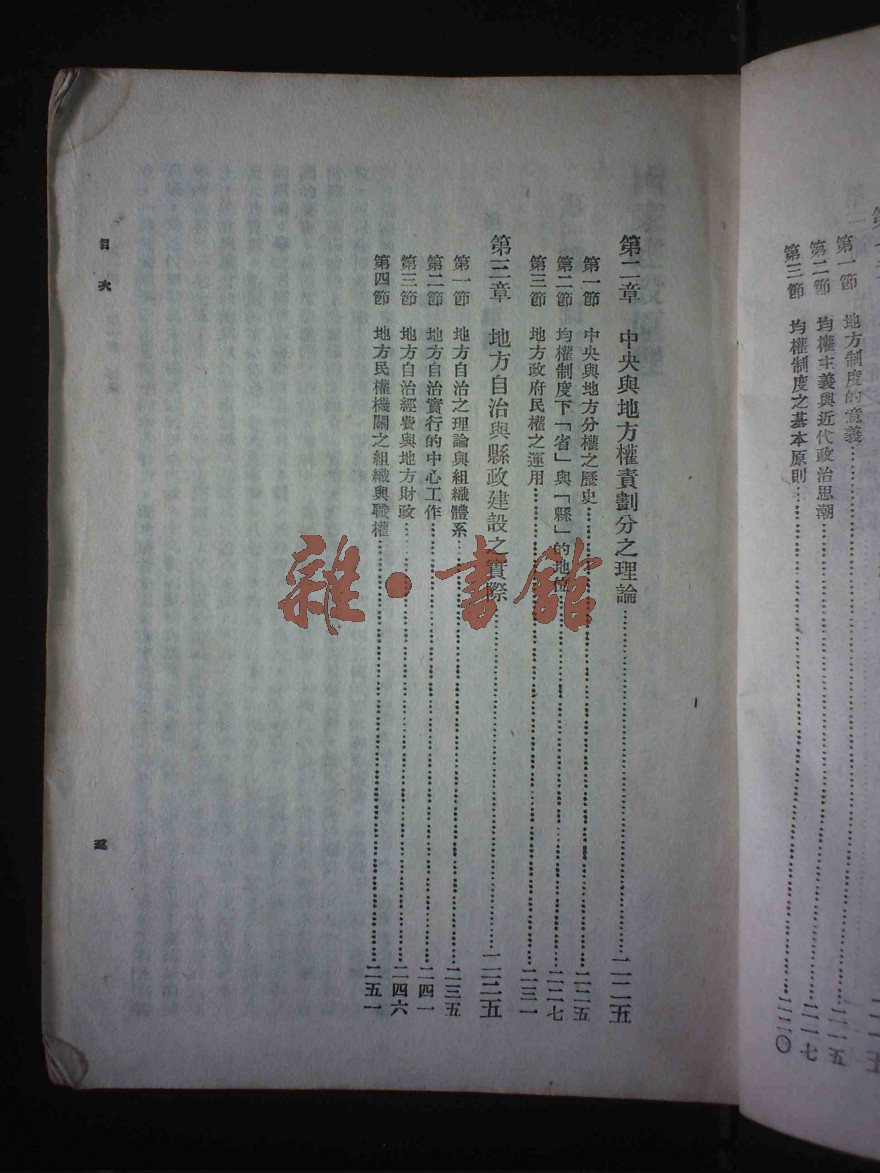 第一節 地方制度的意義……二一五
第二節 均權主義與近代政治思潮……二一七
第三節 均權制度之基本原則……二二〇
第二章 中央與地方權責劃分之理論……二二五
第一節 中央與地方分權之歷史……二二五
第二節 均權制度下「省」與「縣」的地位……二二七
第三節 地方政府民權之運用……二三一
第三章 地方自治與縣政建設之實際……二三五
第一節 地方自治之理論與組織體系……二三五
第二節 地方自治實行的中心工作……二四一
第三節 地方自治經費與地方財政……二四六
第四節 地方民權機關之組織與職權……二五一
目次
五
雜·書館